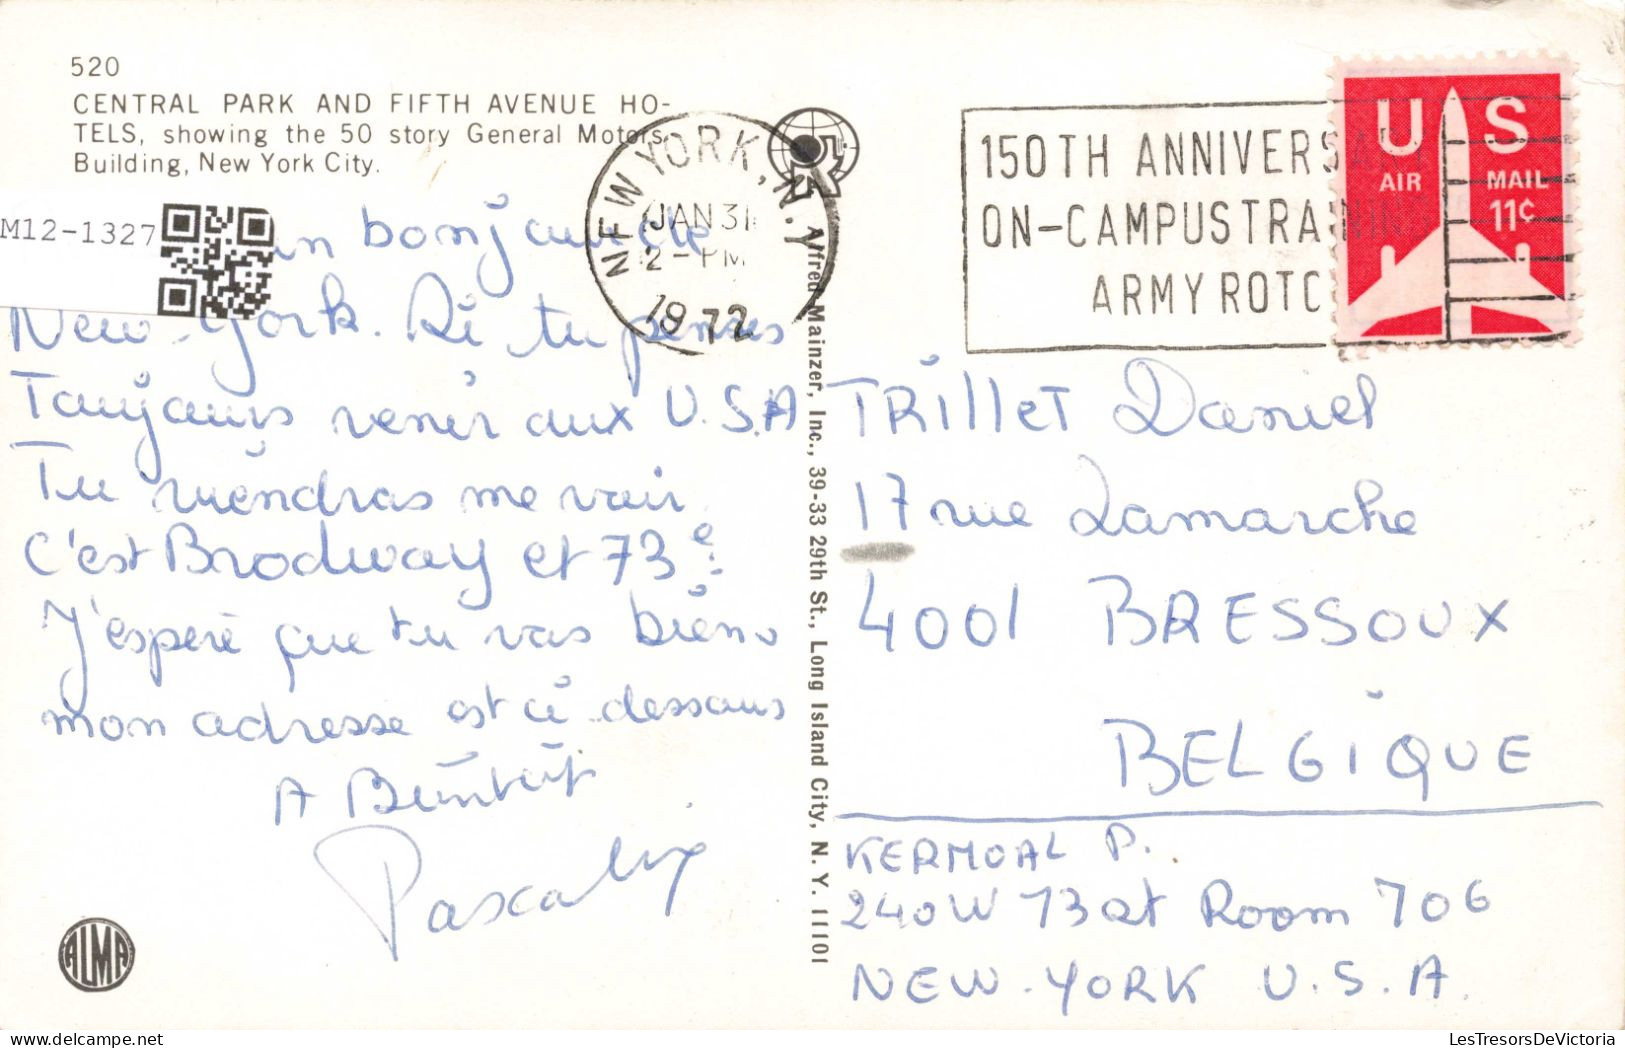 520
CENTRAL PARK AND FIFTH AVENUE HO-
TELS, showing the 50 story General Motors
Building, New York City.
M12-1327
un bonjour de
New-York. Si tu penses
Toujours venir aux U.S.A
Tu viendras me voir
C'est Brodway et 73e
J'espère que tu vas bien
mon adresse est ci dessous
A Bientôt
Pascal
ALMA
Alfred Mainzer, Inc., 39-33 29th St., Long Island City, N. Y. 11101
NEW YORK, N.Y
JAN 31
2 - PM
1972
150TH ANNIVERSARY
ON-CAMPUS TRAINING
ARMY ROTC
US
AIR MAIL
11¢
TRILLET Daniel
17 rue Lamarche
4001 BRESSOUX
BELGIQUE
KERMOAL P.
240W 73at Room 706
NEW-YORK U.S.A.
LesTresorsDeVictoria